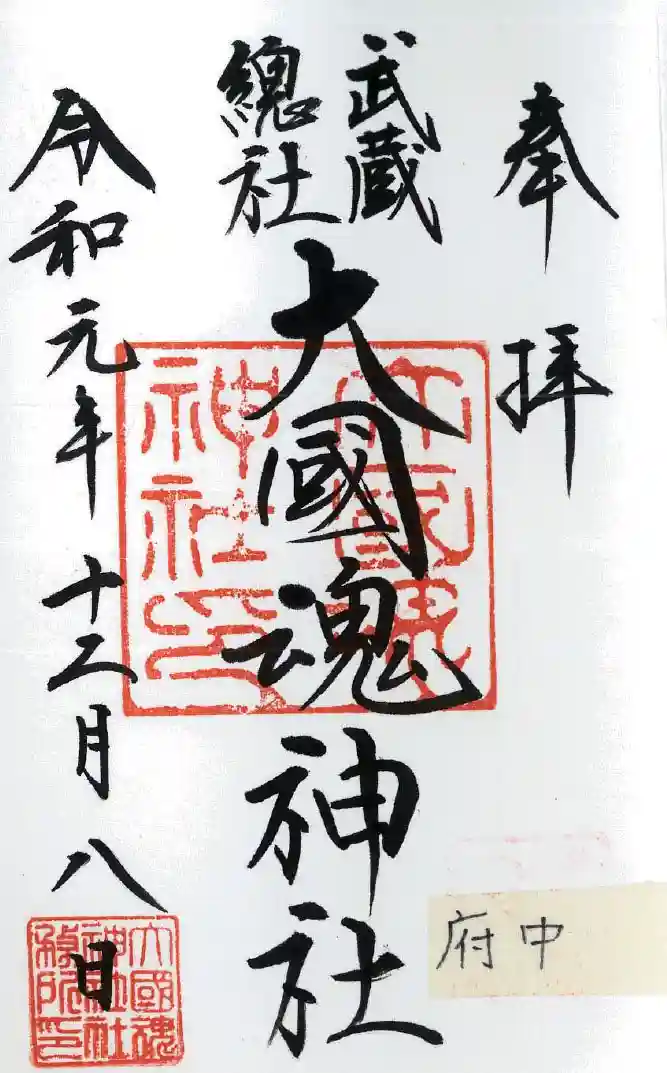 奉拝
武蔵
總社
大國魂神社
令和元年十二月八日
大國魂神社印
大國魂
神社社
務所印
府中